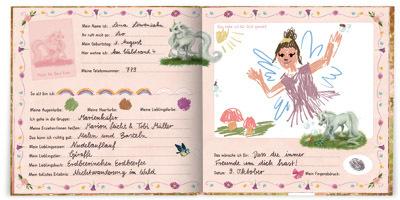 Mein Name ist: Lena Löwenzahn
Ihr ruft mich so: Leo
Mein Geburtstag: 3. August
Hier wohne ich: Am Waldrand 4
Meine Telefonnummer: 779
So alt bin ich:
Meine Augenfarbe: Meine Haarfarbe: Meine Lieblingsfarbe:
Ich gehe in die Gruppe: Marienkäfer
Meine Erzieher/innen heißen: Marion Licht & Tobi Müller
Das kann ich richtig gut: Malen und Basteln
Mein Lieblingsessen: Nudelauflauf
Mein Lieblingstier: Giraffe
Mein Lieblingsbuch: Erdbeerinchen Erdbeerfee
Mein tollstes Erlebnis: Nachtwanderung im Wald
Das habe ich für Dich gemalt:
Das wünsche ich Dir: Dass du immer
Freunde um dich hast!
Datum: 9. Oktober
Mein Fingerabdruck: